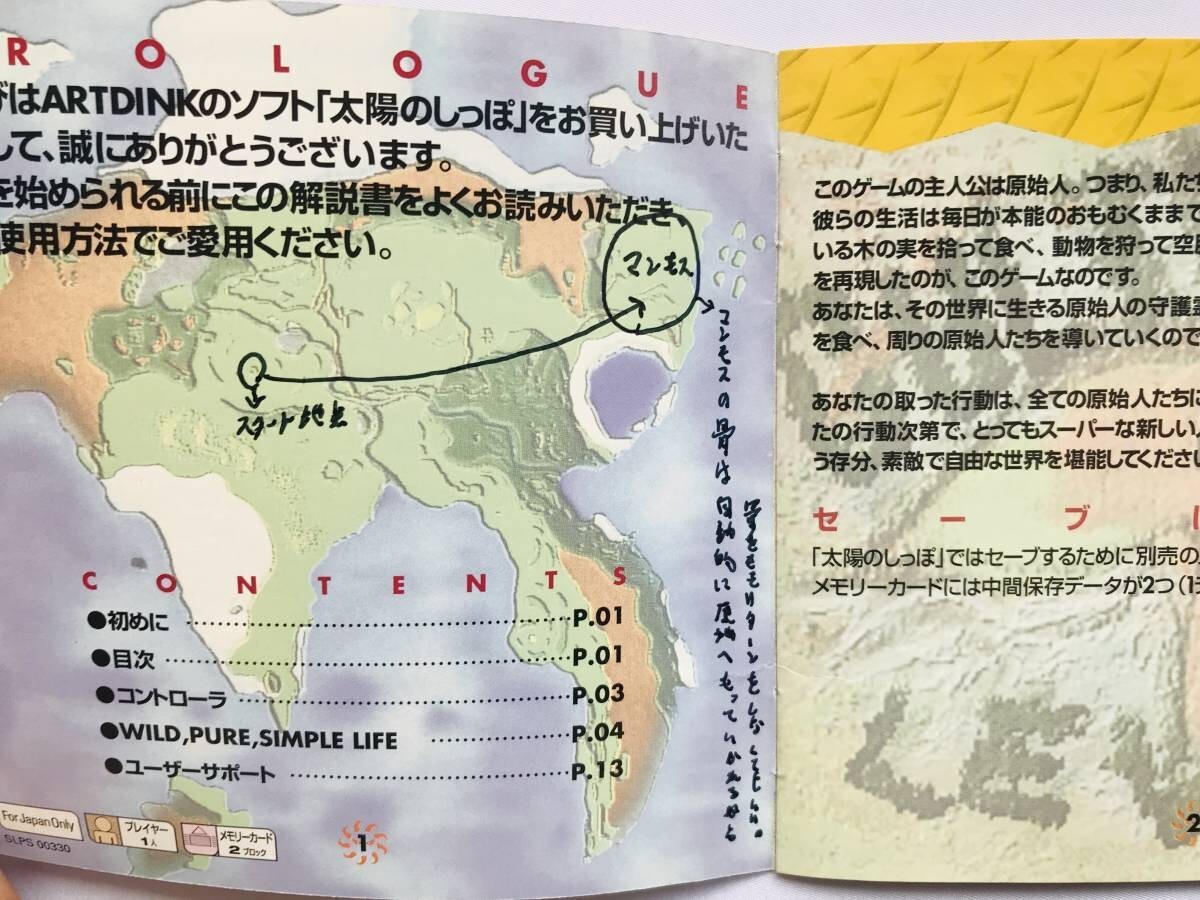 ROLOGUE
びはARTDINKのソフト「太陽のしっぽ」をお買い上げいた
して、誠にありがとうございます。
を始められる前にこの解説書をよくお読みいただき、
使用方法でご愛用ください。
マンモス
スタート地点
マンモスの骨は自動的に原始人がもっていかえるから
骨をもちリターンをしなくてもいい。
CONTENTS
●初めに P.01
●目次 P.01
●コントローラ P.03
●WILD,PURE,SIMPLE LIFE P.04
●ユーザーサポート P.13
For Japan Only
SLPS 00330
プレイヤー
1人
メモリーカード
2ブロック
1
このゲームの主人公は原始人。つまり、私た
彼らの生活は毎日が本能のおもむくままで
いる木の実を拾って食べ、動物を狩って空
を再現したのが、このゲームなのです。
あなたは、その世界に生きる原始人の守護
を食べ、周りの原始人たちを導いていくので
あなたの取った行動は、全ての原始人たちに
たの行動次第で、とってもスーパーな新しい
う存分、素敵で自由な世界を堪能してくださ
セーブ
「太陽のしっぽ」ではセーブするために別売の
メモリーカードには中間保存データが2つ(1
2